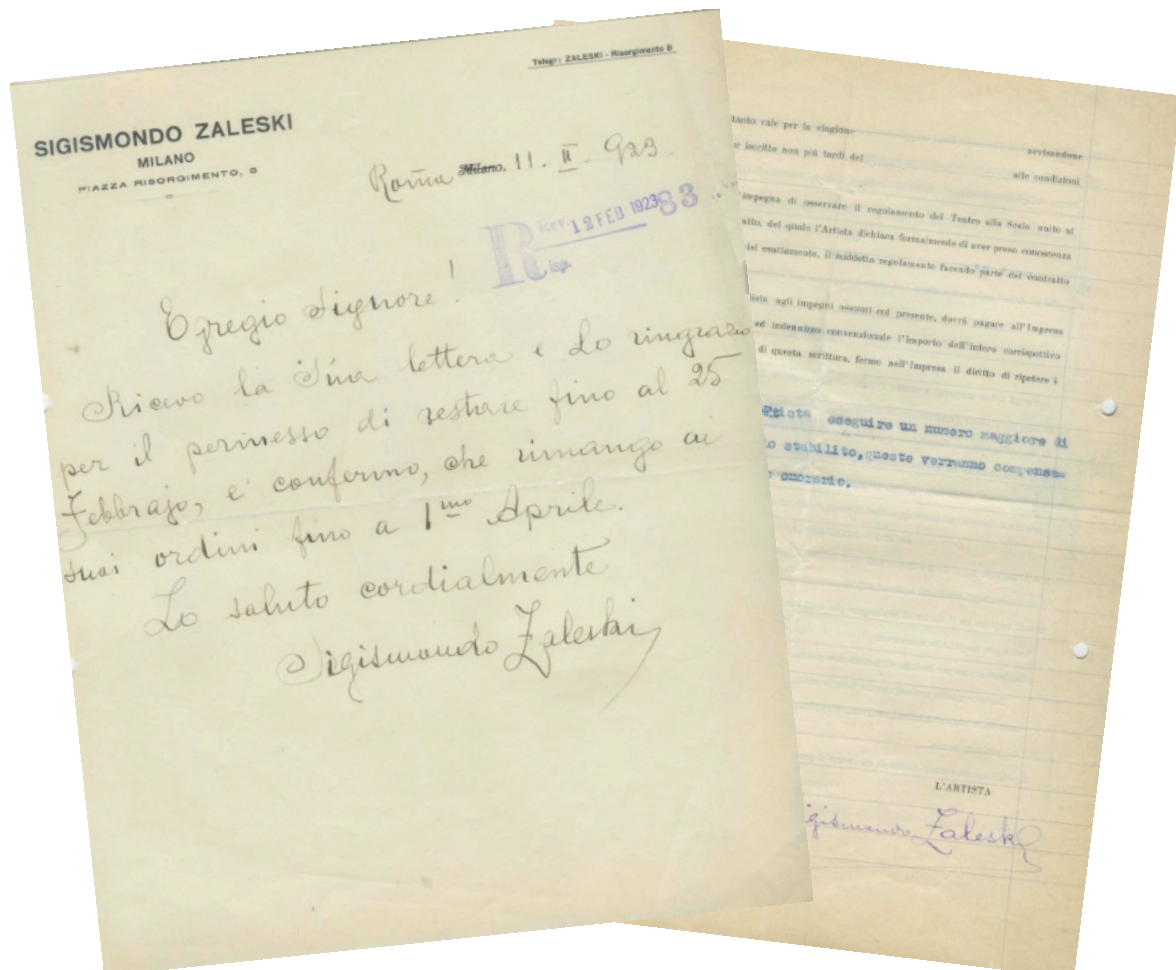 Telegr: ZALESKI - Risorgimento 8
SIGISMONDO ZALESKI
MILANO
PIAZZA RISORGIMENTO, 8
Roma Milano, 11. II. 923.
Ricev. 12 FEB 1923 83
Risp.
Egregio Signore!
Ricevo la Sua lettera e Lo ringrazio
per il permesso di restare fino al 25
Febbrajo, e confermo, che rimango ai
suoi ordini fino a 1mo Aprile.
Lo saluto cordialmente
Sigismondo Zaleski
tanto vale per la stagione
avvisandone
iscritto non più tardi del
alle condizioni
impegna di osservare il regolamento del Teatro alla Scala unito al
del quale l'Artista dichiara formalmente di aver preso conoscenza
esattamente, il suddetto regolamento facendo parte del contratto
agli impegni assunti col presente, dovrà pagare all'Impresa
ed indennizzo convenzionale l'importo dell'intero corrispettivo
di questa scrittura, fermo nell'Impresa il diritto di ripetere i
eseguire un numero maggiore di
stabilito, queste verranno compensa=
onorario.
L'ARTISTA
igismondo Zaleski